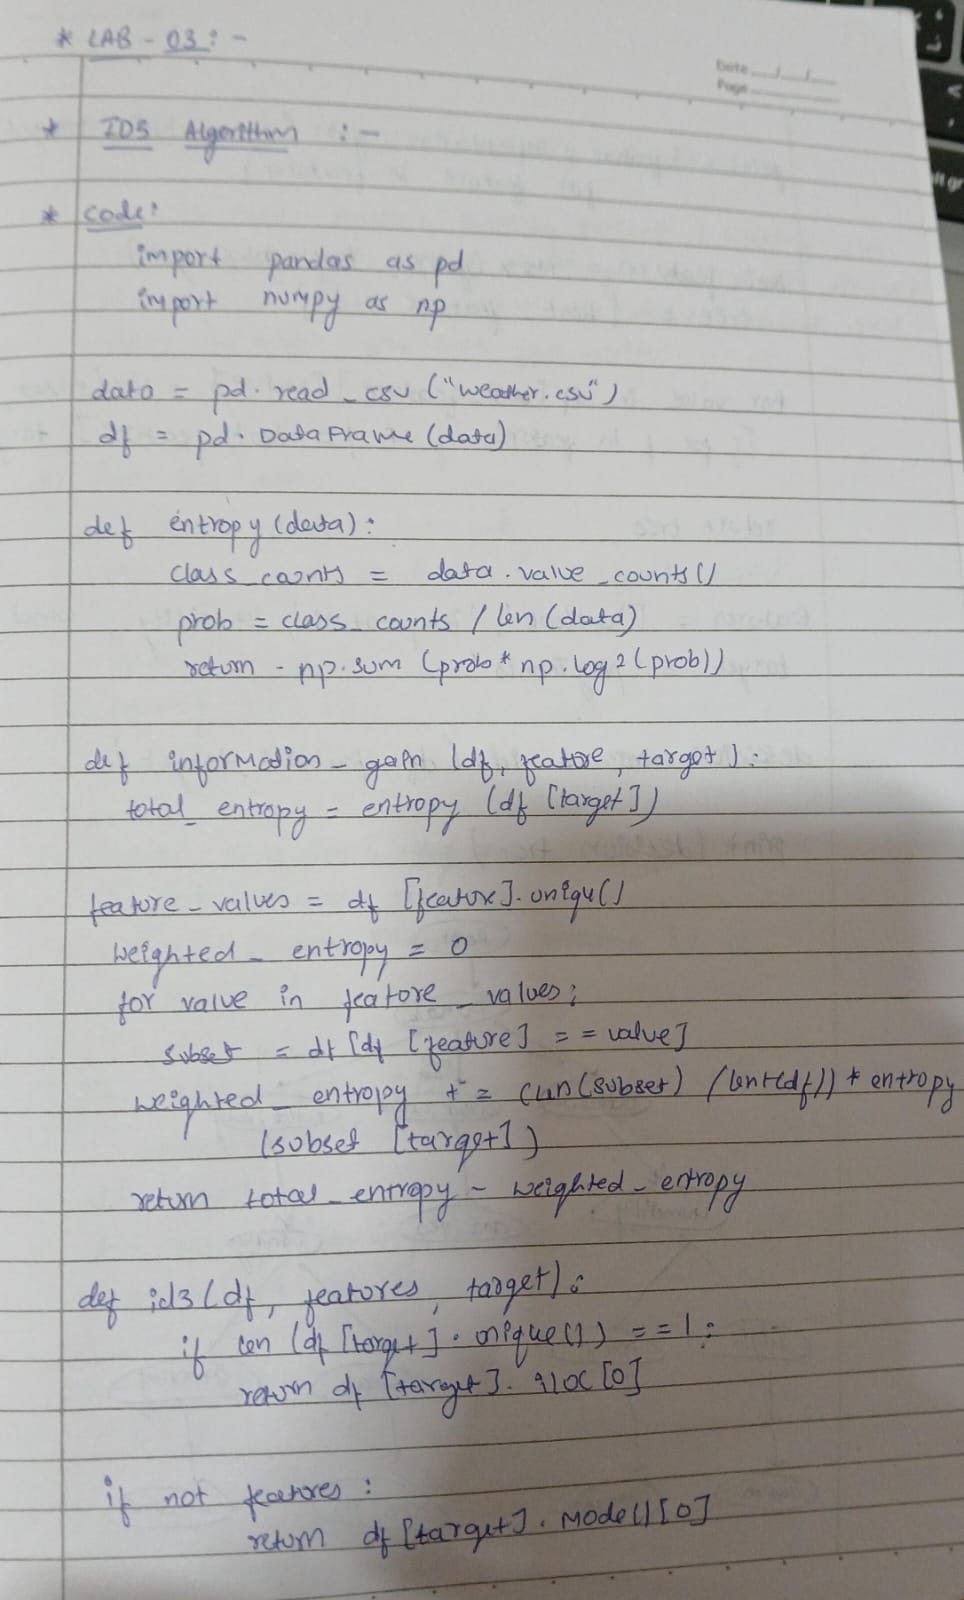 * LAB - 03 : -
Date
Page
* ID3 Algorithm : -
* code:
import pandas as pd
import numpy as np
data = pd. read _ csv ("weather. csv")
df = pd. DataFrame (data)
def entropy (data) :
class_counts = data. value _ counts ()
prob = class_ counts / len (data)
return - np. sum (prob * np. log 2 (prob))
def information _ gain (df, feature, target) :
total_ entropy = entropy (df [target])
feature _ values = df [feature]. uniqu()
weighted _ entropy = 0
for value in feature _ values ;
subset = df [df [feature] = = value]
weighted _ entropy + = (len (subset) / len(df)) * entropy
(subset [target])
return total_entropy - weighted _ entropy
def id3 (df, features, target) :
if len (df [target] . unique ()) == 1 :
return df [target]. iloc [0]
if not features :
return df [target]. mode () [0]